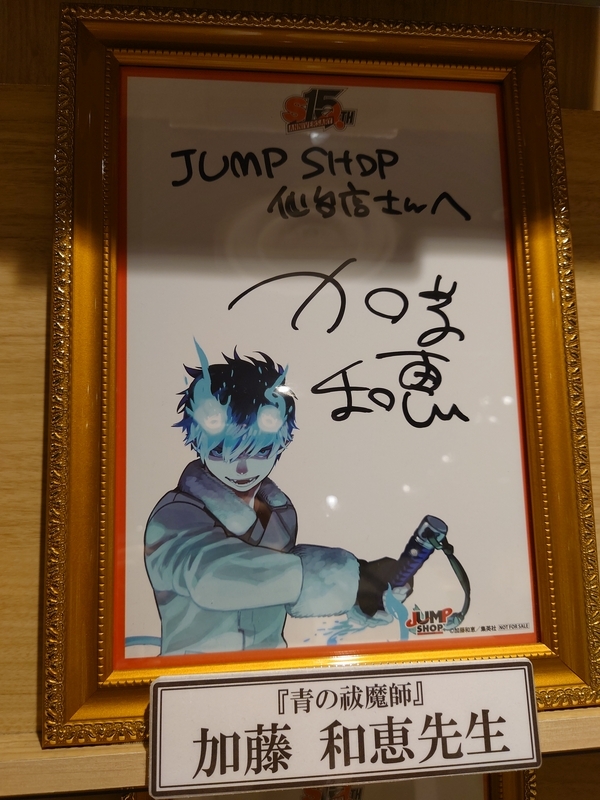 15TH
ANNIVERSARY
JUMP SHOP
仙台店さんへ
加藤
和恵
JUMP
SHOP
©加藤和恵／集英社 NOT FOR SALE
『青の祓魔師』
加藤 和恵先生